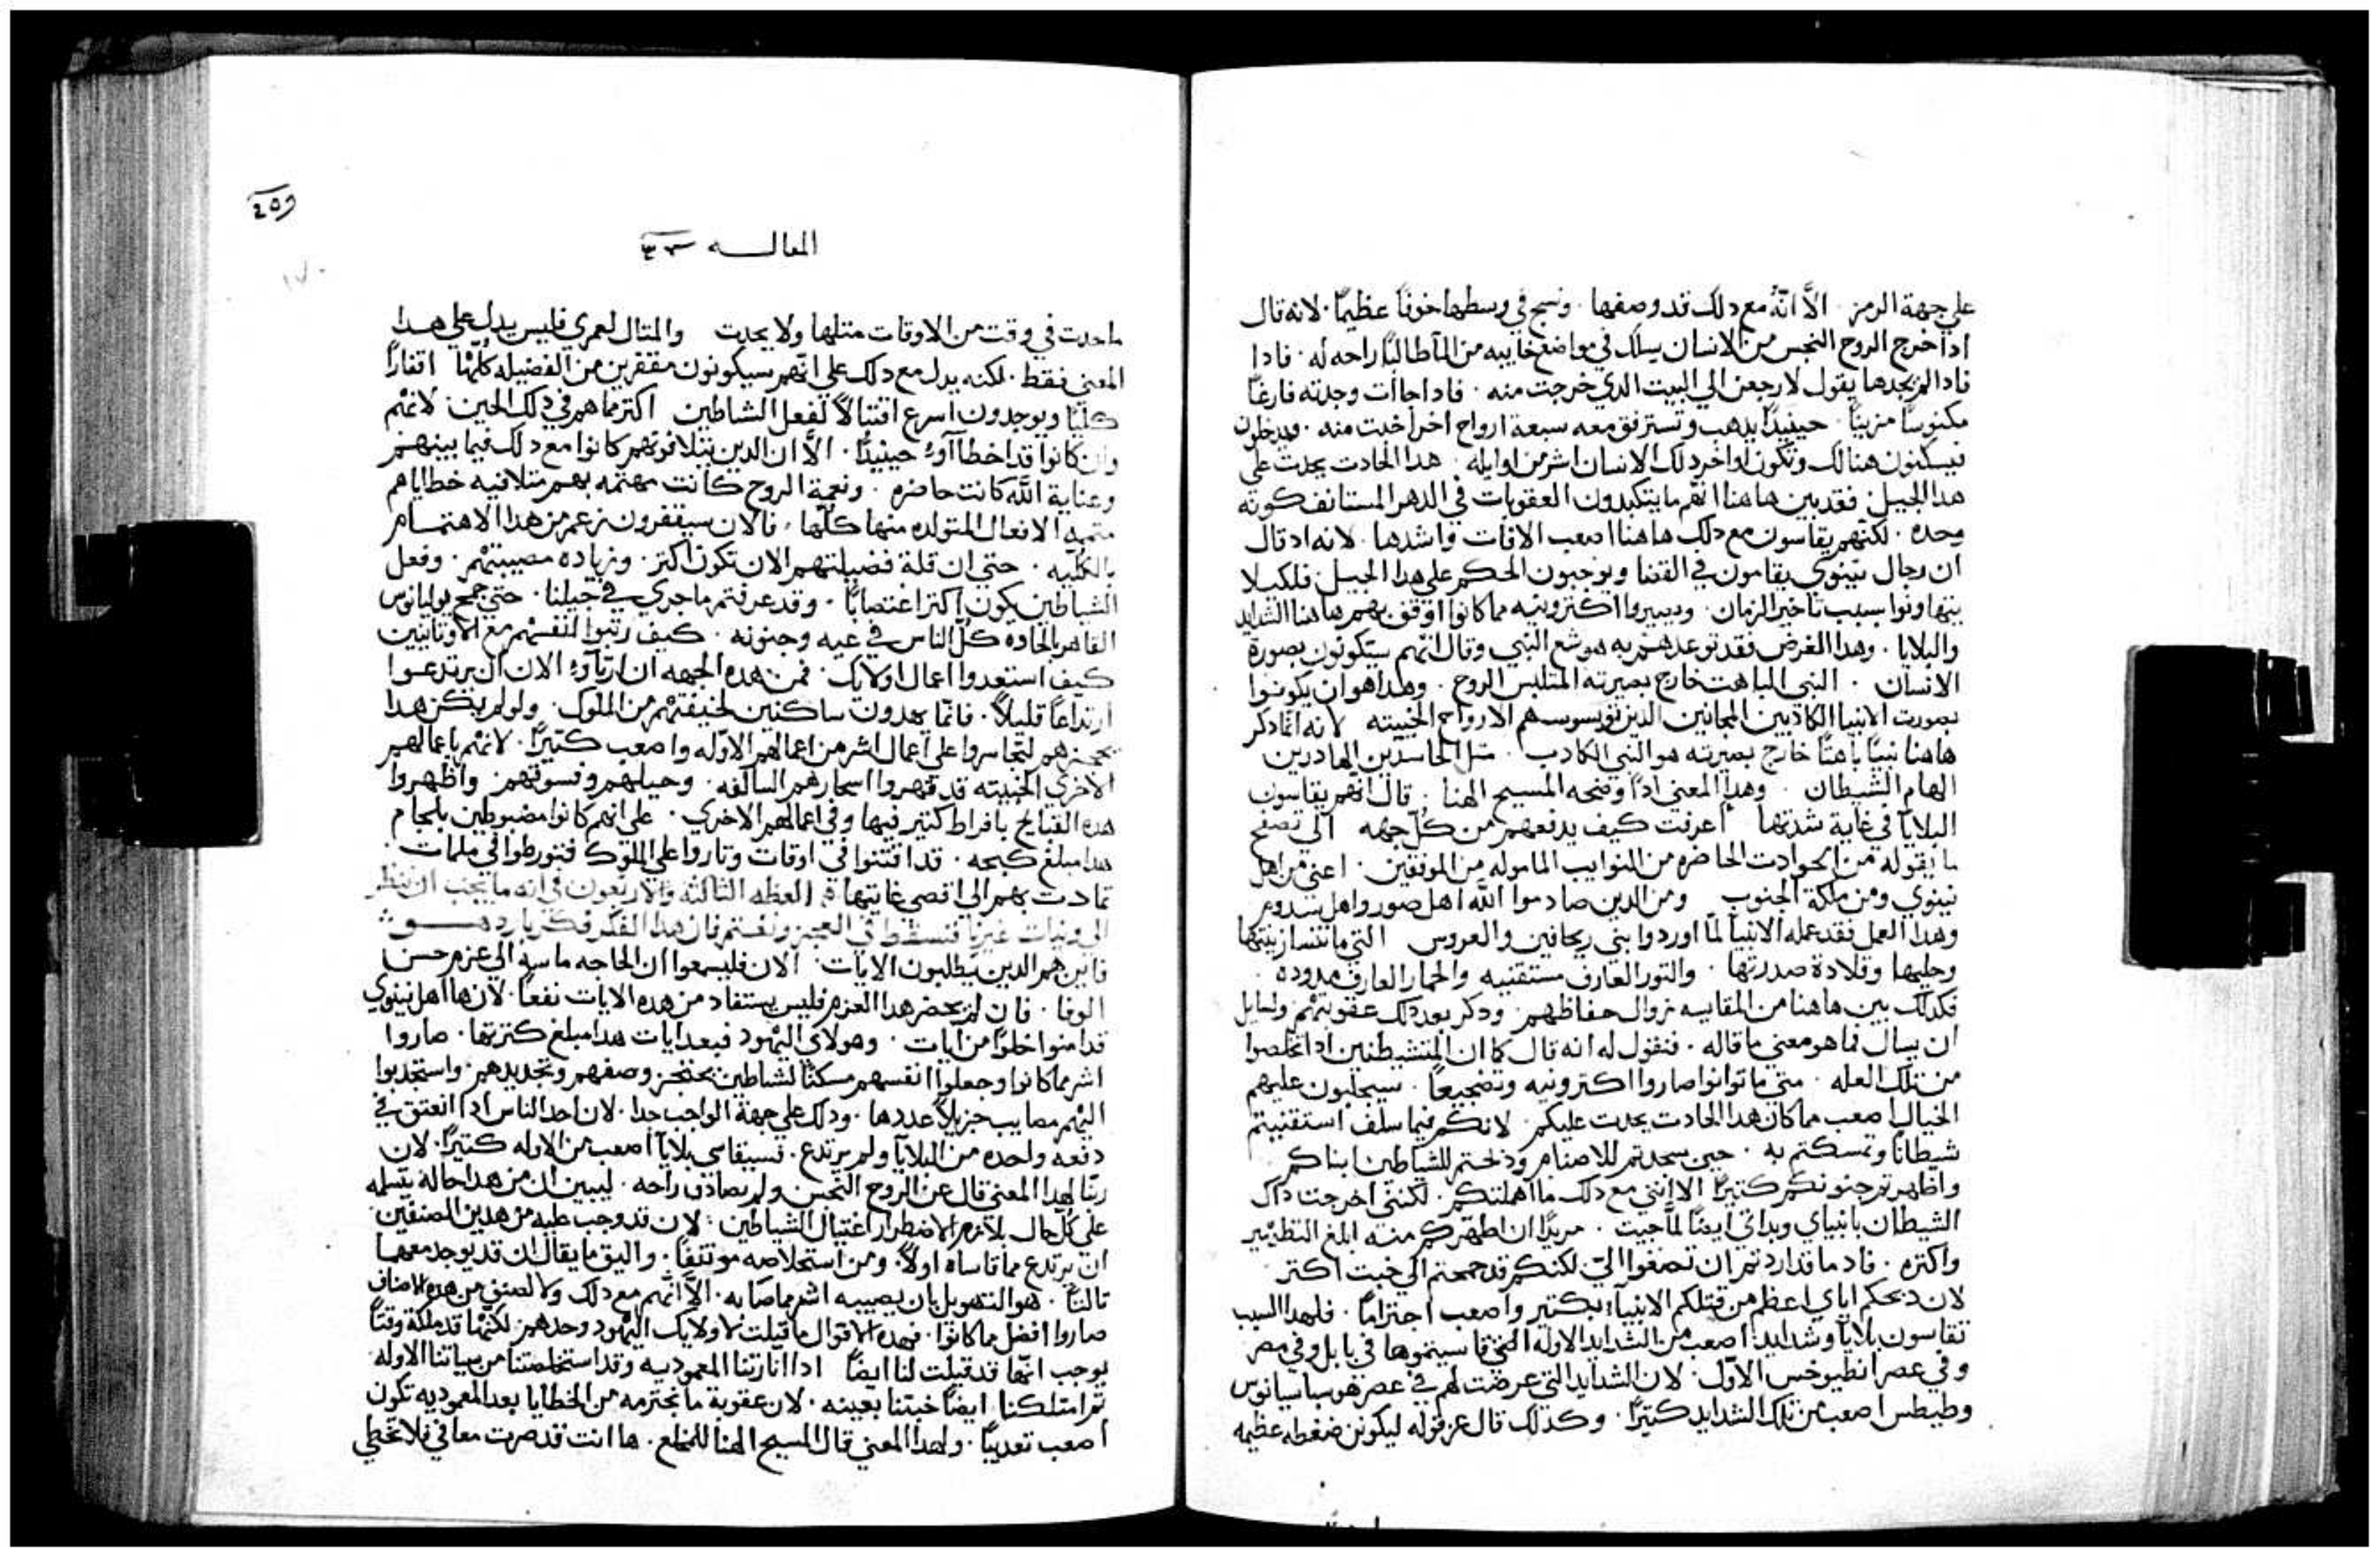 علي جهة الرمز . الاَّ انّهُ مع دلك قد وصفها . ونسج في وسطها خوفاً عظيمًا . لانه قال
ادا خرج الروح النجس من الانسان يسلك في مواضع خاييه من الماَ طالباً راحه له . فادا
فادا لم يجدها يقول لارجعن الي البيت الدي خرجت منه . فادا جاات وجدته فارغاً
مكنوساً مزيناً . حينيداً يدهب وتسترفق معه سبعة ارواح اخر اخبت منه . ويدخلون
فيسكنون هنالك وتكون اواخر دلك الانسان اشر من اوايله . هدا الحادت يحدت علي
هدا الجيل . فقد بين هاهنا انهم ما يتكبدون العقوبات في الدهر المستانف كونه
وحده . لكنهم يقاسون مع دلك هاهنا اصعب الافات واشدها . لانه اد قال
ان رجال نينوي يقامون في القضا ويوجبون الحكم علي هدا الجيل . فلكيلا
يتهاونوا بسبب تاخير الزمان . ويصيروا اكتر ونيه مما كانوا اوقف بهم هاهنا الشدايد
والبلايا . وهدا الغرض فقد توعدهم به هوشع النبي وقال انهم سيكونون بصورة
الانسان . النبي الباهت خارج بصيرته المتلبس الروح . وهدا هو ان يكونوا
بصورت الانبيا الكادبين المجانين الدين توسوسهم الارواح الخبيته لانه انما دكر
هاهنا نبيًا باهتًا خارج بصيرته هو النبي الكادب . متل الحاسدين الهادرين
الهام الشيطان . وهدا المعني اداً وضحه المسيح الهنا . قال انهم يقاسون
البلايا في غاية شدتها اعرفت كيف يدفعهم من كل جهه الي تصفح
ما يقوله من الحوادت الحاضره من النوايب الماموله من الموفقين . اعني من اهل
نينوي ومن ملكة الجنوب ومن الدين صادموا الله اهل صور واهل سدوم
وهدا العمل فقد عمله الانبيا لمّا اوردوا بني ريحافين والعروس التي ما تنسا زينتها
وحليها وقلادة صدرتها . والتور العارف مستقنيه والحمار العارف مدوده .
فكدلك بين هاهنا من المقايسه زوال حفاظهم . ودكر بعد دلك عقوبتهم ولسايل
ان يسال فما هو معني ما قاله . فنقول له انه قال كما ان المتشيطنين ادا تخلصوا
من تلك العله . متي ما توانوا صاروا اكتر ونيه وتضجيعاً . سيجلبون عليهم
الخيال اصعب مما كان هدا الحادت يحدت عليكم . لانكم فيما سلف استقنيتم
شيطاناً وتمسكتم به . حين سجدتم للاصنام ودبحتم للشياطين ابناكم
واظهرتم جنونكم كتيراً الا انني مع دلك ما اهملتكم . لكنني اخرجت داك
الشيطان بانبياي وبداتي ايضًا لمّا جيت . مريدًا ان اطهركم منه ابلغ التطهير
واكتره . فاد ما قد اردتم ان تصغوا اليّ لكنكم قد جمحتم الي خبت اكتر
لان دبحكم اياي اعظم من قتلكم الانبياَ بكتير واصعب اجتراماً . فلهدا السبب
تقاسون بلايا وشدايد اصعب من الشدايد الاوله التي قاسيتموها في بابل وفي مصر
وفي عصر انطيوخس الاول . لان الشدايد التي عرضت لهم في عصر هوسباسيانوس
وطيطس اصعب من تلك الشدايد كتيراً . وكدلك قال عن قوله ليكونن ضغطه عظيمه
٤٥٩
المقاله ٤٣
ما حدت في وقت من الاوقات متلها ولا يحدت والمتال لعمري فليس يدل علي هدا
المعني فقط . لكنه يدل مع دلك علي انهم سيكونون مقفرين من الفضيله كلها اقفارًا
كليًا ويوجدون اسرع اقتبالاً لفعل الشاطين اكتر مما هم في دلك الحين لانهم
وان كانوا قد اخطاآوا حينيدًا . الاّ ان الدين يتلافونهم كانوا مع دلك فيما بينهم
وعناية الله كانت حاضره . ونعمة الروح كانت مهتمه بهم متلافيه خطاياهم
متممه الافعال المتولده منها كلها . فالان سيقفرون زعم من هدا الاهتمام
بالكليه . حتي ان قلة فضيلتهم الان تكون اكتر . وزياده مصيبتهم . وفعل
الشياطين يكون اكتر اغتصابًا . وقد عرفتم ما جري في جيلنا . حتي جمح يوليانوس
القاهر بالحاده كل الناس في غيه وجنونه . كيف رتبوا انفسهم مع الاوتانيين
كيف استعدوا اعمال اولايك . فمن هده الجهه ان ارتاآوا الان ان يرتدعوا
ارتداعًا قليلاً . فانما يهدون ساكنين لخيفتهم من الملوك . ولو لم يكن هدا
يحجزهم لتجاسروا علي اعمال اشر من اعمالهم الاوله واصعب كتيرًا . لانهم باعمالهم
الاخري الخبيته قد قهروا اسحارهم السالفه . وحيلهم وفسوقهم . واظهروا
هده القبايح بافراط كتير فيها وفي اعمالهم الاخري . علي انهم كانوا مضبوطين بلجام
هدا مبلغ كبحه . قد افتتنوا في اوقات وتاروا علي الملوك فتورطوا في ملمات .
تمادت بهم الي اقصي غايتها ⁘ العظه الثالثه والاربعون في انه ما يجب ان ننظر
الي ونيات غيرنا فنسقط في العجز ونغتم فان هدا الفكر فكر بارد هو ⁘
فاين هم الدين يطلبون الايات . الان فليسمعوا ان الحاجه ماسه الي عزم حسن
الوفا . فان لم يحضر هدا العزم فليس يستفاد من هده الايات نفعًا . لان ها اهل نينوي
قد امنوا خلوًا من ايات . وهولاي اليهود فبعد ايات هدا مبلغ كترتها . صاروا
اشر مما كانوا وجعلوا انفسهم مسكنًا لشاطين يحجز وصفهم وتحديدهم . واستجدبوا
اليهم مصايب جزيلاً عددها . ودلك علي جهة الواجب جدا . لان احد الناس ادا انعتق في
دفعه واحده من البلايا ولم يرتدع . فسيقاسي بلايا اصعب من الاوله كتيرًا . لان
ربنا لهدا المعني قال عن الروح النجس ولم يصادف راحه . ليبين ان من هدا حاله يتسلمه
علي كل حال بلازم الاضطرار اغتيال الشياطين . لان قد وجب عليه من هدين الصنفين
ان يرتدع مما قاساه اولاً . ومن استخلاصه موتنفًا . واليق ما يقال ان قد يوجد معهما
تالتًا . هو التهويل بان يصيبه اشر مما صابه . الاّ انهم مع دلك ولا لصنف من هده الاصناف
صاروا افضل مما كانوا . فهده الاقوال ما قيلت لاولايك اليهود وحدهم . لكنها قد ملكة وقتًا
يوجب انها قد قيلت لنا ايضًا ادا انارتنا المعموديه وقد استخلصتنا من سياتنا الاوله
تم امتلكنا ايضًا خبتنا بعينه . لان عقوبة ما نجترمه من الخطايا بعد المعموديه تكون
اصعب تعديبًا . ولهدا المعني قال المسيح الهنا للمخلع . ها انت قد صرت معافي فلا تخطي